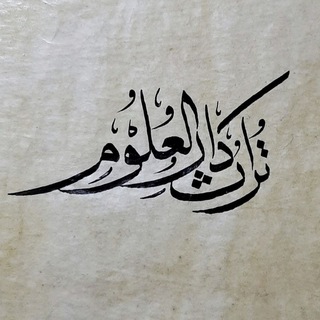 تراث دار العلوم